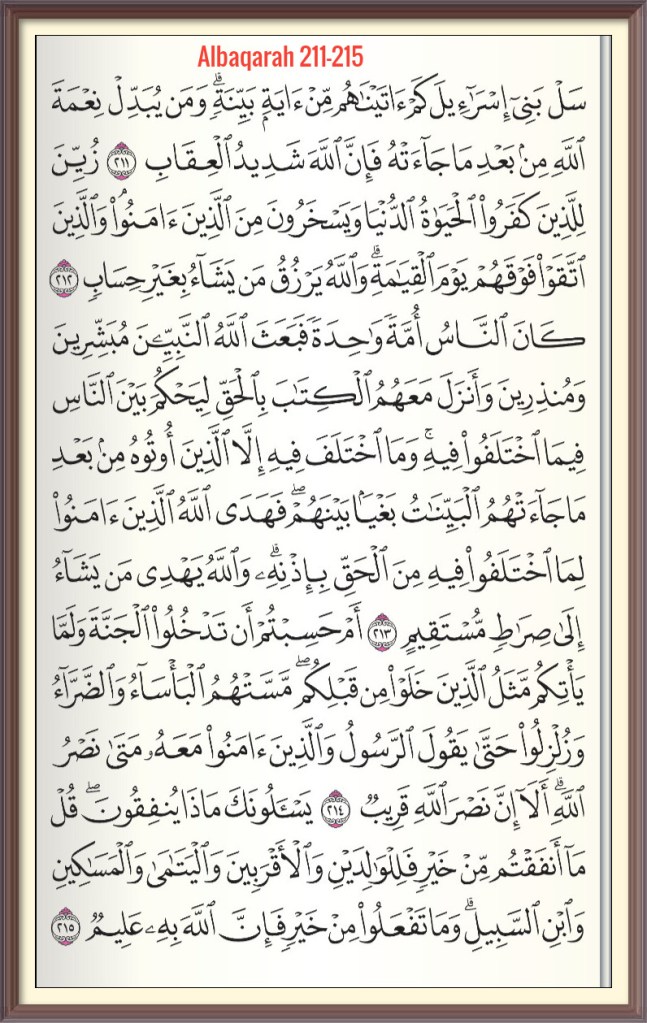 Albaqarah 211-215
سَلْ بَنِىٓ إِسْرَٰٓءِيلَ كَمْ ءَاتَيْنَٰهُم مِّنْ ءَايَةٍۭ بَيِّنَةٍۗ وَمَن يُبَدِّلْ نِعْمَةَ
ٱللَّهِ مِنۢ بَعْدِ مَا جَآءَتْهُ فَإِنَّ ٱللَّهَ شَدِيدُ ٱلْعِقَابِ ٢١١ زُيِّنَ
لِلَّذِينَ كَفَرُوا۟ ٱلْحَيَوٰةُ ٱلدُّنْيَا وَيَسْخَرُونَ مِنَ ٱلَّذِينَ ءَامَنُوا۟ۘ وَٱلَّذِينَ
ٱتَّقَوْا۟ فَوْقَهُمْ يَوْمَ ٱلْقِيَٰمَةِۗ وَٱللَّهُ يَرْزُقُ مَن يَشَآءُ بِغَيْرِ حِسَابٍ ٢١٢
كَانَ ٱلنَّاسُ أُمَّةً وَٰحِدَةً فَبَعَثَ ٱللَّهُ ٱلنَّبِيِّـۧنَ مُبَشِّرِينَ
وَمُنذِرِينَ وَأَنزَلَ مَعَهُمُ ٱلْكِتَٰبَ بِٱلْحَقِّ لِيَحْكُمَ بَيْنَ ٱلنَّاسِ
فِيمَا ٱخْتَلَفُوا۟ فِيهِۚ وَمَا ٱخْتَلَفَ فِيهِ إِلَّا ٱلَّذِينَ أُوتُوهُ مِنۢ بَعْدِ
مَا جَآءَتْهُمُ ٱلْبَيِّنَٰتُ بَغْيًۢا بَيْنَهُمْۖ فَهَدَى ٱللَّهُ ٱلَّذِينَ ءَامَنُوا۟
لِمَا ٱخْتَلَفُوا۟ فِيهِ مِنَ ٱلْحَقِّ بِإِذْنِهِۦۗ وَٱللَّهُ يَهْدِى مَن يَشَآءُ
إِلَىٰ صِرَٰطٍ مُّسْتَقِيمٍ ٢١٣ أَمْ حَسِبْتُمْ أَن تَدْخُلُوا۟ ٱلْجَنَّةَ وَلَمَّا
يَأْتِكُم مَّثَلُ ٱلَّذِينَ خَلَوْا۟ مِن قَبْلِكُمۖ مَّسَّتْهُمُ ٱلْبَأْسَآءُ وَٱلضَّرَّآءُ
وَزُلْزِلُوا۟ حَتَّىٰ يَقُولَ ٱلرَّسُولُ وَٱلَّذِينَ ءَامَنُوا۟ مَعَهُۥ مَتَىٰ نَصْرُ
ٱللَّهِۗ أَلَآ إِنَّ نَصْرَ ٱللَّهِ قَرِيبٌ ٢١٤ يَسْـَٔلُونَكَ مَاذَا يُنفِقُونَۖ قُلْ
مَآ أَنفَقْتُم مِّنْ خَيْرٍ فَلِلْوَٰلِدَيْنِ وَٱلْأَقْرَبِينَ وَٱلْيَتَٰمَىٰ وَٱلْمَسَٰكِينِ
وَٱبْنِ ٱلسَّبِيلِۗ وَمَا تَفْعَلُوا۟ مِنْ خَيْرٍ فَإِنَّ ٱللَّهَ بِهِۦ عَلِيمٌ ٢١٥